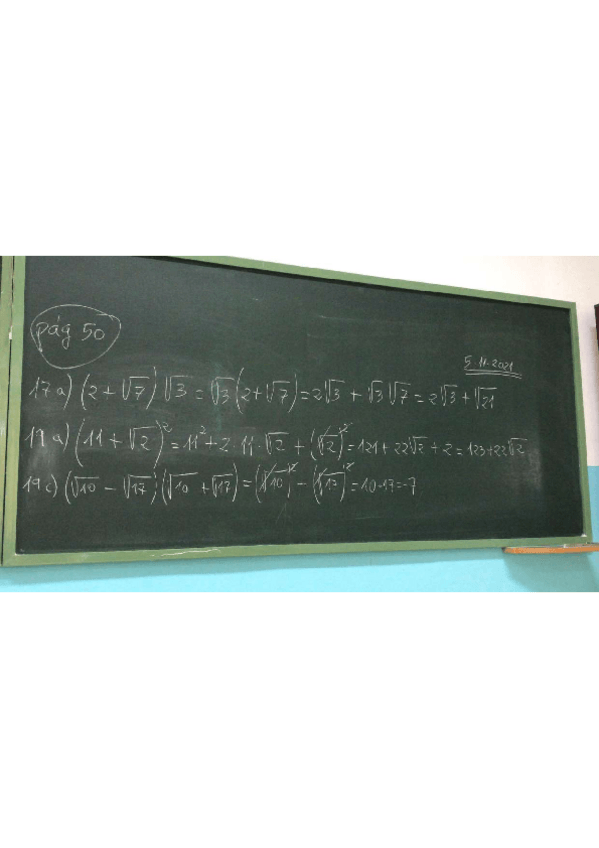 pág 50
5-11-2021
17 a) (2+√7)√3 = √3(2+√7) = 2√3 + √3√7 = 2√3 + √21
19 a) (11+√2)² = 11² + 2·11·√2 + (√2)² = 121 + 22√2 + 2 = 123+22√2
19 c) (√10 - √17)(√10 + √17) = (√10)² - (√17)² = 10-17=-7